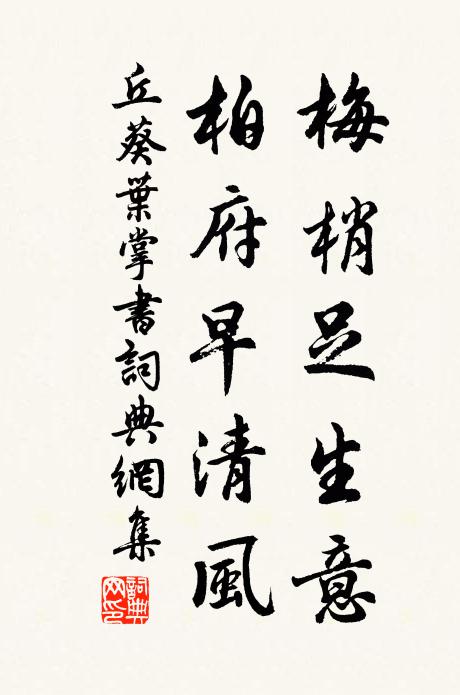 梅梢足生意
柏府早清風
丘葵葉掌書詞典網集
詞典
網印